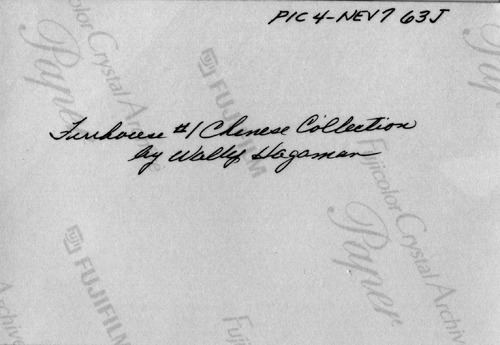 PIC 4-NEV7 63J
Firehouse #1 Chinese Collection
by Wally Hagaman
Fujicolor Crystal Archive
Paper
FUJIFILM
Fujicolor Crystal Archive
Paper
FUJIFILM
Archive
Fujicolor
Archive